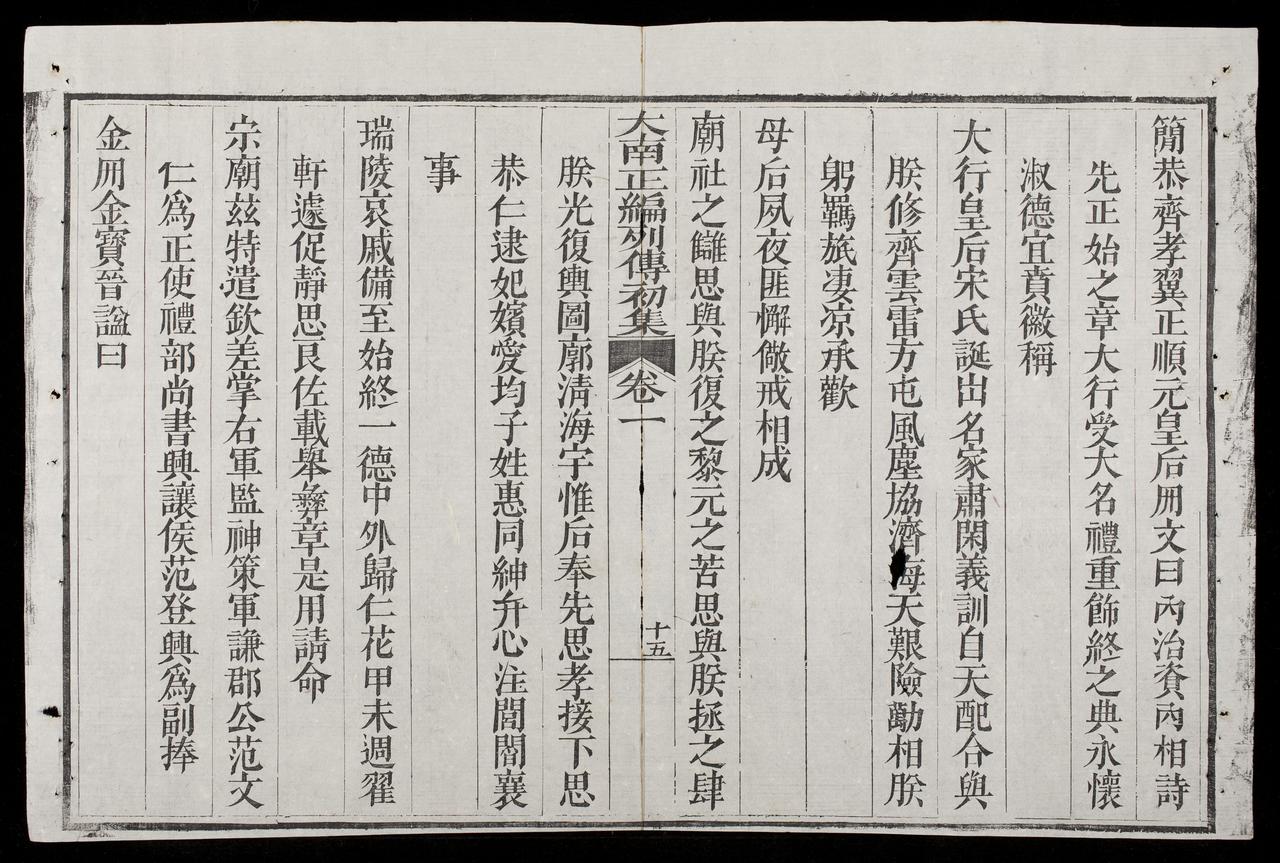 簡恭齊孝翼正順元皇后册文曰內治資內相詩
先正始之章大行受大名禮重飾終之典永懷
淑德宜賁徽稱
大行皇后宋氏誕出名家肅閑義訓自天配合與
朕修齊雲雷方屯風塵協濟海天艱險勤相朕
躬羈旅凄凉承歡
母后夙夜匪懈儆戒相成
廟社之讎思與朕復之黎元之苦思與朕拯之肆
大南正編列傳初集 卷一 十五
朕光復輿圖廓清海宇惟后奉先思孝接下思
恭仁逮妃嬪愛均子姓惠同紳弁心注閭閻襄
事
瑞陵哀戚備至始終一德中外歸仁花甲未週翟
軒遽促靜思良佐載舉彝章是用請命
宗廟茲特遣欽差掌右軍監神策軍謙郡公范文
仁爲正使禮部尚書興讓侯范登興爲副捧
金册金寶晉謚曰